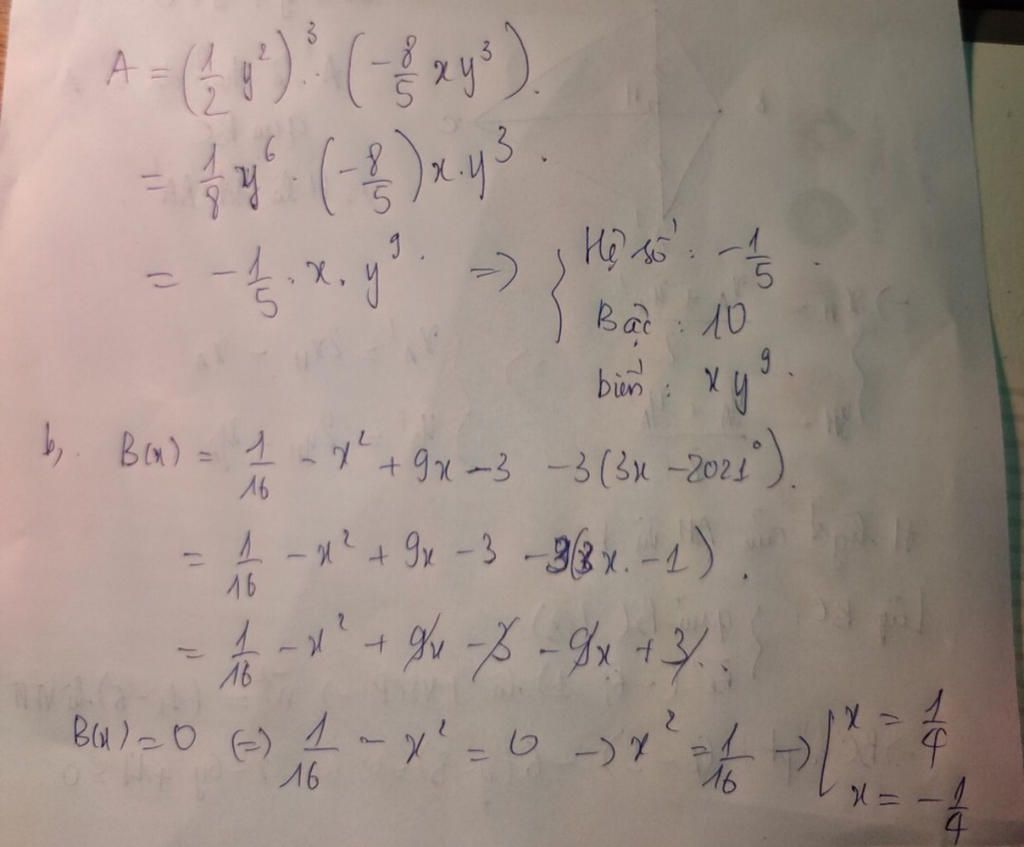 A = (1/2 y²)³ . (-8/5 xy³).
= 1/8 y⁶ . (-8/5) x.y³.
= -1/5 . x . y⁹. => { Hệ số: -1/5.
Bậc: 10
biến: xy⁹.
b, B(x) = 1/16 - x² + 9x - 3 - 3(3x - 2021⁰).
= 1/16 - x² + 9x - 3 - 3(3x - 1).
= 1/16 - x² + 9x - 3 - 9x + 3.
B(x) = 0 (=) 1/16 - x² = 0 -> x² = 1/16 -> [ x = 1/4
x = -1/4